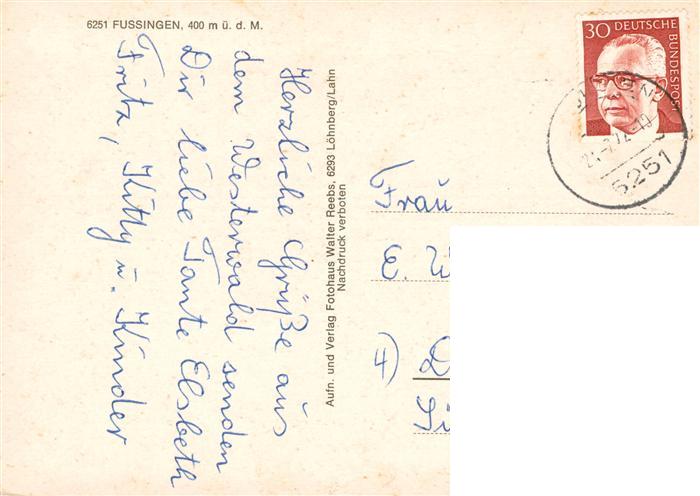 6251 FUSSINGEN, 400 m ü. d. M.
Herzliche Grüße aus
dem Westerwald senden
Dir liebe Tante Elsbeth
Fritz, Kitty u. Kinder
Aufn. und Verlag Fotohaus Walter Reebs, 6293 Löhnberg/Lahn
Nachdruck verboten
30 DEUTSCHE
BUNDESPOST
5251
Frau
E.
4)